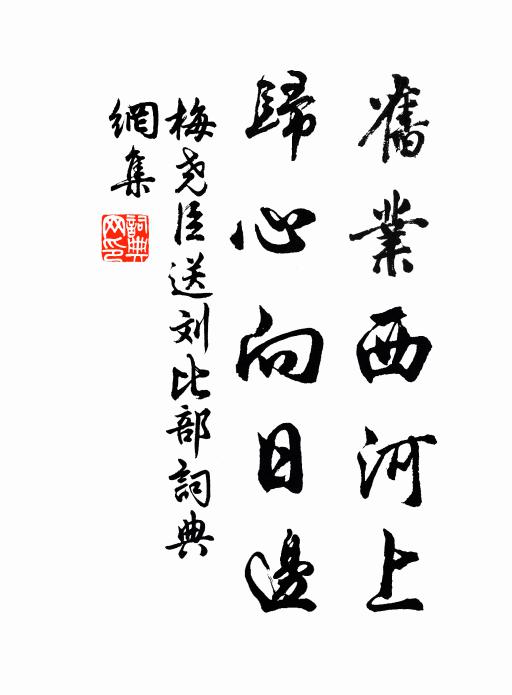 舊業西河上
歸心向日邊
梅尧臣送刘比部詞典
網集
詞典网印